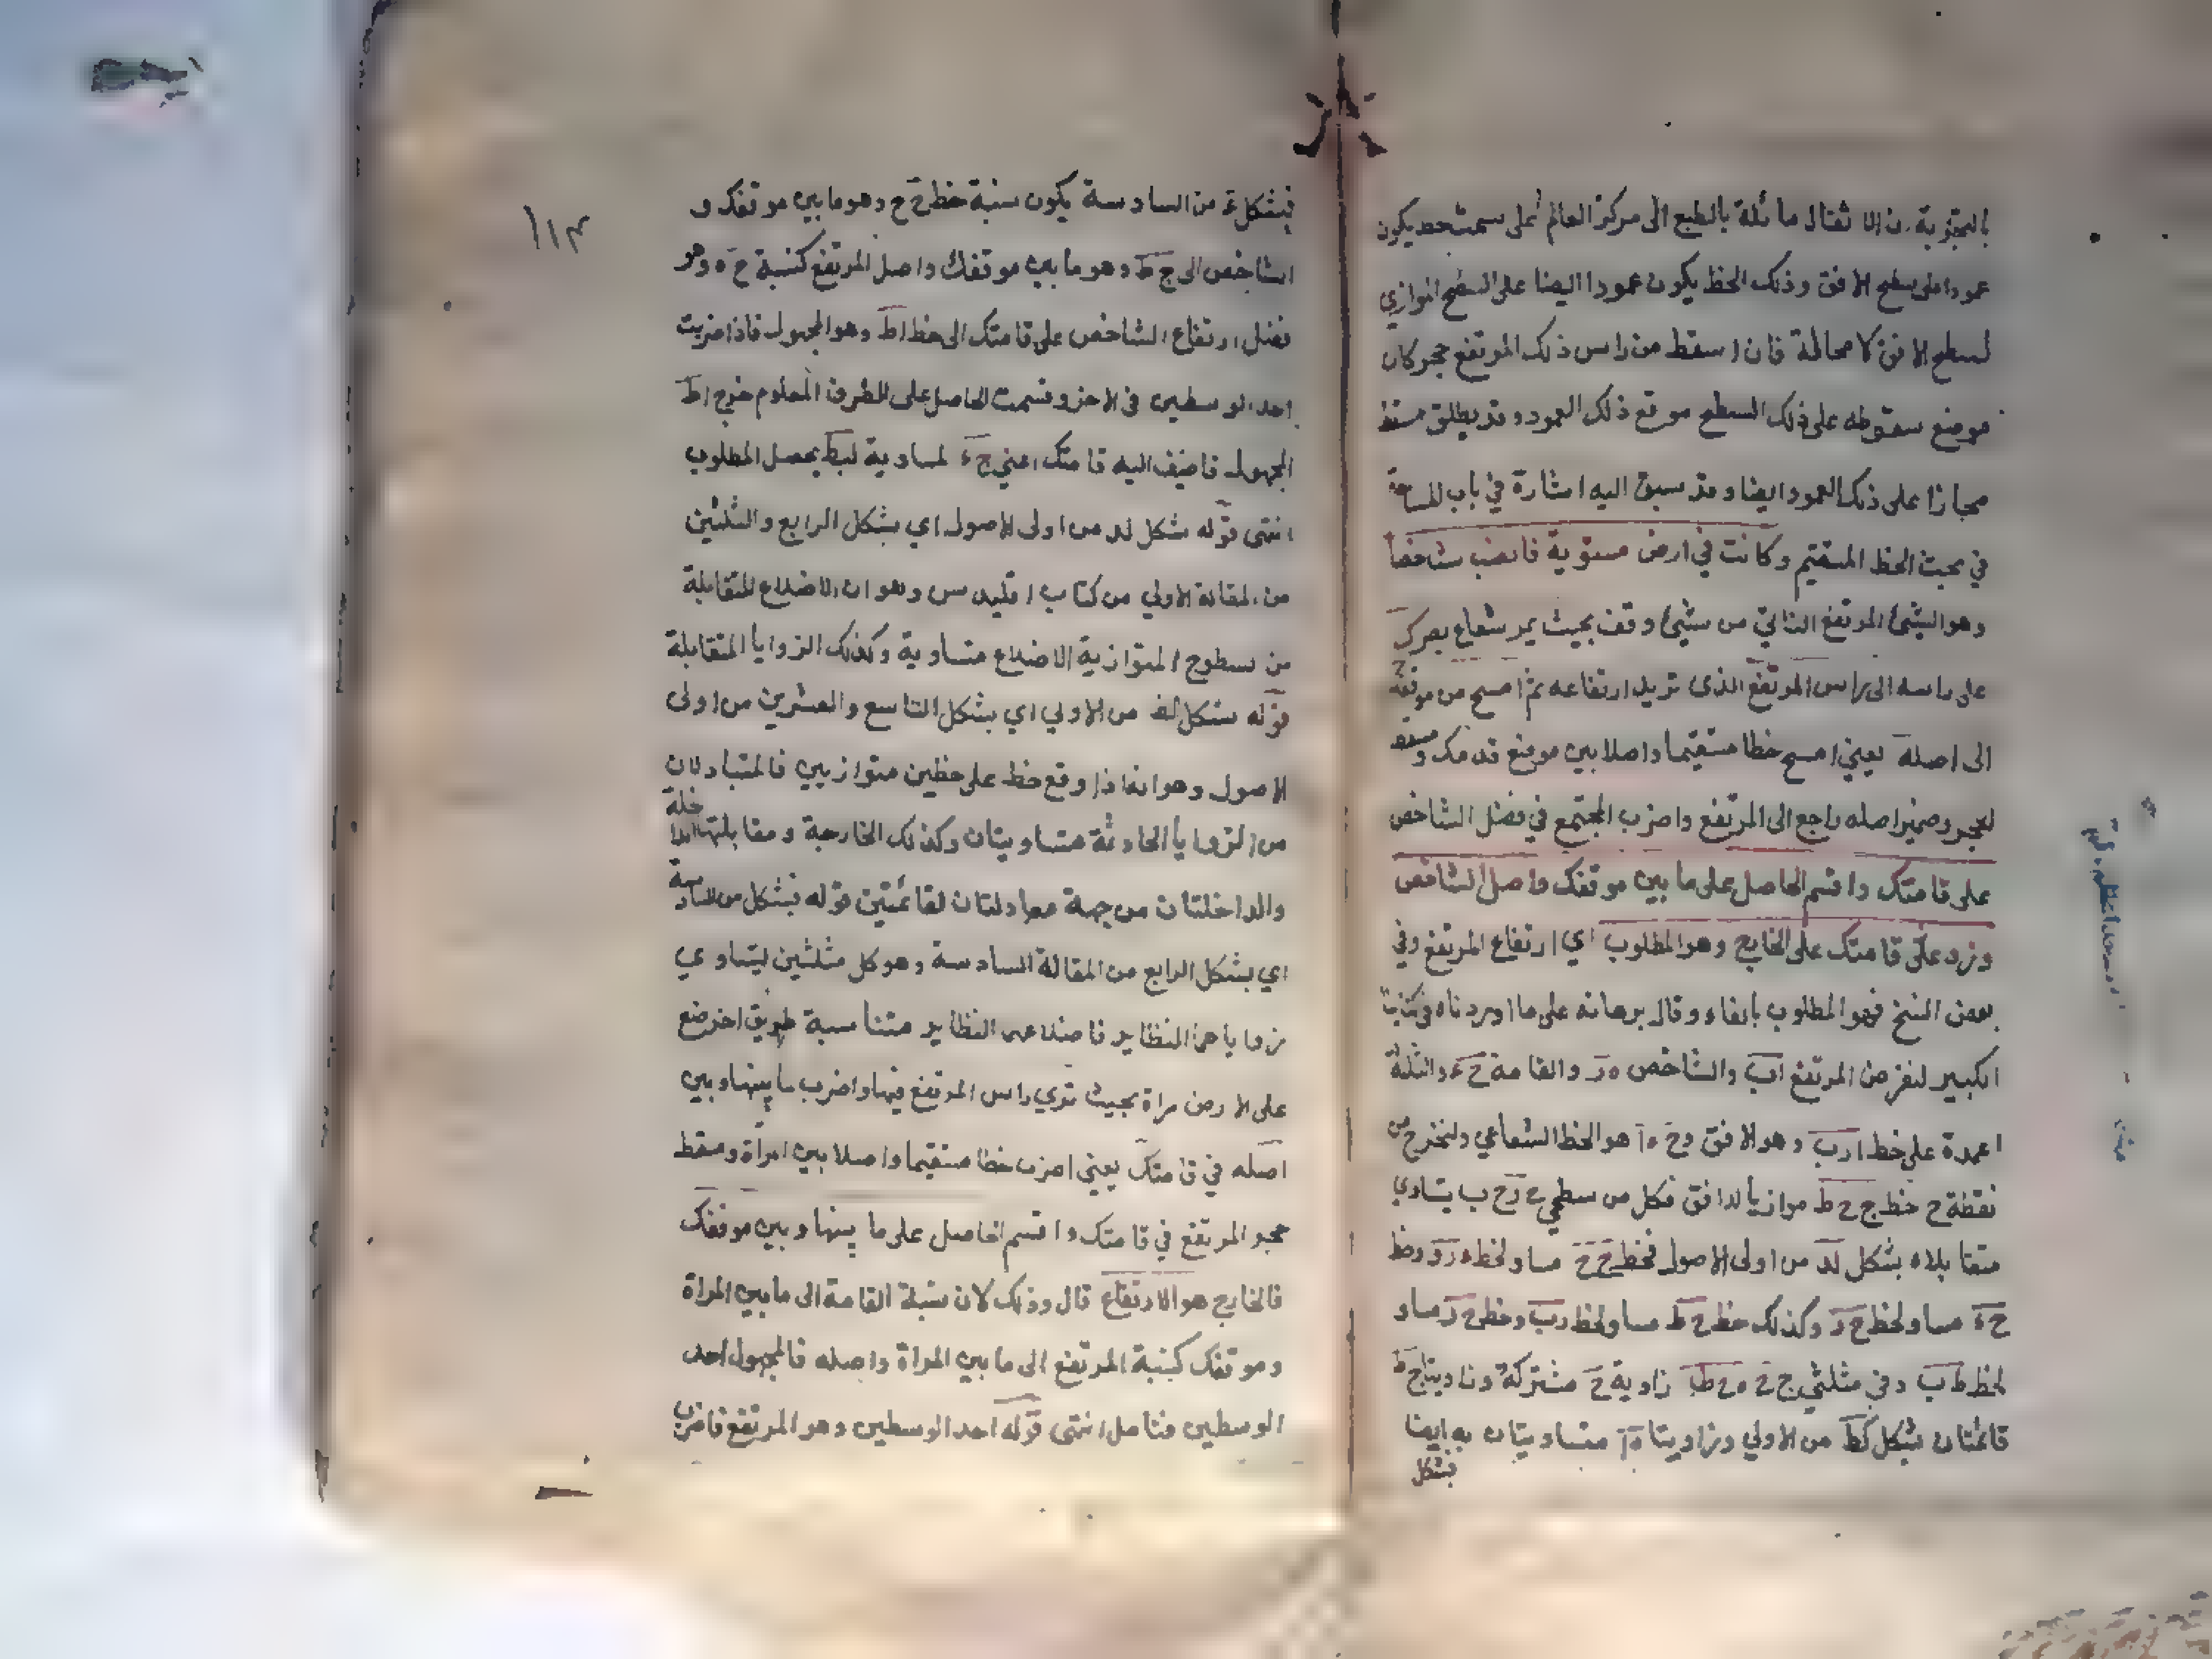 بالتجربة ان الاثقال مائلة بالطبع الى مركز العالم على سمت خط يكون
عمودا على سطح الافق وذلك الخط يكون عمودا ايضا على السطح الموازي
لسطح الافق لا محالة فان اسقط من راس ذلك المرتفع حجر كان
موضع سقوطه على ذلك السطح موقع ذلك العمود وقد يطلق مسقط
مجازا على ذلك العمود ايضا وقد سبق اليه اشارة في باب المساحة
في مبحث الخط المستقيم وكانت في ارض مستوية فانصب شاخصا
وهو الشئ المرتفع الناتئ من شئ وقف بحيث يمر شعاع بصرك
على راسه الى راس المرتفع الذى تريد ارتفاعه ثم امسح من موقفك
الى اصله يعني امسح خطا مستقيما واصلا بين موضع قدمك ومسقط
الحجر وضمير اصله راجع الى المرتفع واضرب المجتمع في فضل الشاخص
على قامتك واقسم الحاصل على ما بين موقفك واصل الشاخص
وزد على قامتك على الخارج وهو المطلوب اي ارتفاع المرتفع وفي
بعض النسخ فهو المطلوب بالفاء وقال برهانه على ما اوردناه في كتابنا
الكبير لنفرض المرتفع اب والشاخص ه ز والقامة ح ء والثلثة
اعمدة على خط ء ز ب وهو الافق وح ه ا هو الخط الشعاعي ولنخرج من
نقطة ح خط ح ج ط موازيا للافق فكل من سطحي ح ز ج ب يتساوي
متقابلاه بشكل لد من اولى الاصول فخط ح ج مساو لخط ء ز وخط
ح ء مساو لخط ج ز وكذلك خط ج ط مساو لخط ز ب وخط ج ز مساو
لخط ط ب وفي مثلثي ح ج ه ح ط ا زاوية ح مشتركة وزاويتا ج ط
قائمتان بشكل كط من الاولي وزاويتا ه ا متساويتان به ايضا
فبشكل
١١٣
فبشكل ء من السادسة يكون نسبة خط ح ج وهو ما بين موقفك و
الشاخص الى ح ط وهو ما بين موقفك واصل المرتفع كنسبة ج ه وهو
فضل ارتفاع الشاخص على قامتك الى خط ا ط وهو المجهول فاذا ضربت
احد الوسطين في الاخر وقسمت الحاصل على الطرف المعلوم خرج ا ط
المجهول فاضف اليه قامتك اعني ح ء لمساوية لبط يحصل المطلوب
انتهى قوله بشكل لد من اولى الاصول اي بشكل الرابع والثلثين
من المقالة الاولي من كتاب اقليدس وهو ان الاضلاع المتقابلة
من سطوح المتوازية الاضلاع متساوية وكذلك الزوايا المتقابلة
قوله بشكل كط من الاولي اي بشكل التاسع والعشرين من اولى
الاصول وهو انه اذا وقع خط على خطين متوازيين فالمتبادلتان
من الزوايا الحادثة متساويتان وكذلك الخارجة ومقابلتها الداخلة
والداخلتان من جهة معادلتان لقائمتين قوله فبشكل من السادسة
اي بشكل الرابع من المقالة السادسة وهو كل مثلثين يتساوي
زواياهما النظاير فاضلاعهما النظاير متناسبة طريق اخر ضع
على الارض مراة بحيث تري راس المرتفع فيها واضرب ما بينها وبين
اصله في قامتك يعني اضرب خطا مستقيما واصلا بين المراة ومسقط
حجر المرتفع في قامتك واقسم الحاصل على ما بينها وبين موقفك
فالخارج هو الارتفاع قال وذلك لان نسبة القامة الى ما بين المراة
وموقفك كنسبة المرتفع الى ما بين المراة واصله فالمجهول احد
الوسطين فتامل انتهى قوله احد الوسطين وهو المرتفع فاضرب